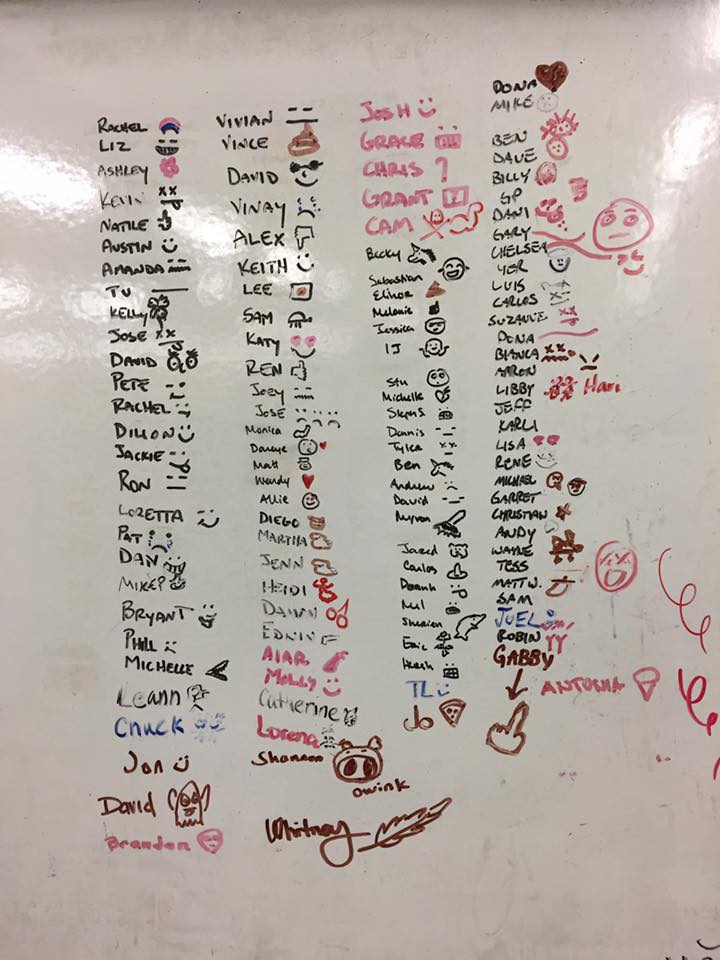 RACHEL
LIZ
ASHLEY
KEVIN
NATILE
AUSTIN
AMANDA
TU
KELLY
JOSE
DAVID
PETE
RACHEL
DILLON
JACKIE
RON
LORETTA
PAT
DAN
MIKEP
BRYANT
PHILL
MICHELLE
Leann
Chuck
Jon
David
Brandon
VIVIAN
VINCE
DAVID
VINAY
ALEX
KEITH
LEE
SAM
KATY
REN
JOEY
JOSE
Monica
Matt
Wendy
Allie
DIEGO
MARTHA
JENN
HEIDI
DAWN
EDWIN
AIAR
MOLLY
Catherine
Lorena
Shannon
OWINK
Whitney
JOSH
GRACE
CHRIS ?
GRANT
CAM
Becky
Sebastian
Elinor
Melanie
Jessica
IJ
Stu
Michelle
Steph S
Dennis
Tyler
Ben
Andrew
David
Myron
Jared
Carlos
Mel
Eric
TL
Jo
DONA
MIKE
BEN
DAVE
BILLY
GP
DANI
GARY
CHELSEA
YER
LUIS
CARLOS
SUZANNE
DONA
BIANCA
AARON
LIBBY Hari
JEFF
KARLI
LISA
RENE
MICHAEL
GARRET
CHRISTIAN
ANDY
WAYNE
TESS
MATT W.
SAM
JUEL
ROBIN
GABBY
ANTONIA